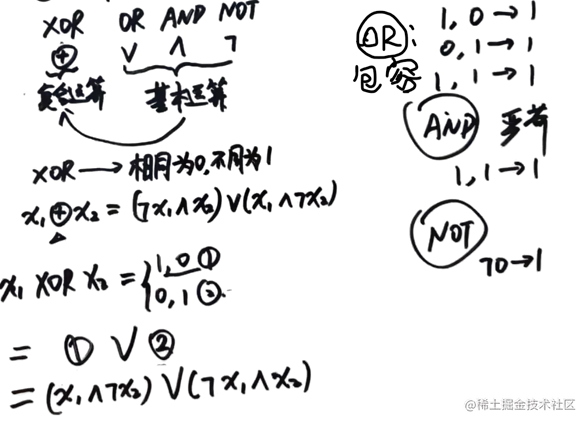 XOR OR AND NOT
⊕ ∨ ∧ ¬
复合运算 基本运算
XOR → 相同为0,不同为1
x₁⊕x₂ = (¬x₁∧x₂)∨(x₁∧¬x₂)
x₁ XOR x₂ = { 1,0 ①
0,1 ②.
= ① ∨ ②
= (x₁∧¬x₂)∨(¬x₁∧x₂)
OR: 1,0→1
0,1→1
包容 1,1→1
AND
1,1→1
NOT
¬0→1
@稀土掘金技术社区